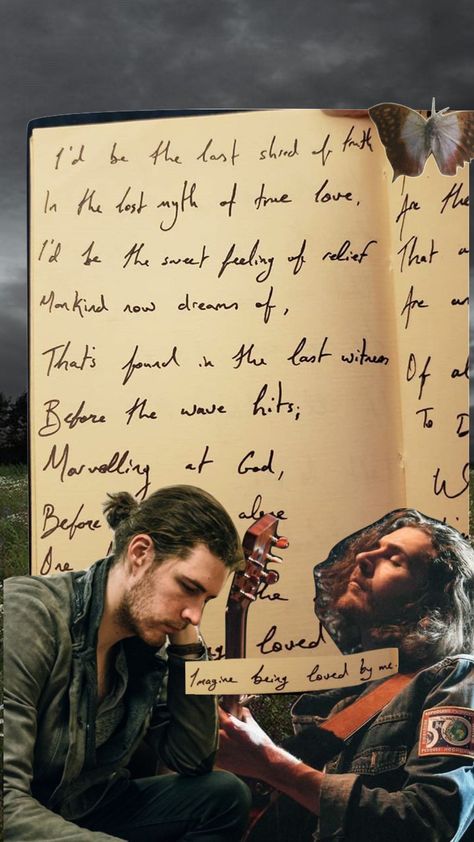 I'd be the last shred of truth
In the lost myth of true love,
I'd be the sweet feeling of relief
Mankind now dreams of,
That's found in the last witness
Before the wave hits;
Marvelling at God,
Before alone
One
the
loved
Imagine being loved by me.
Are the
That a
Are an
Of al
To D
W
50